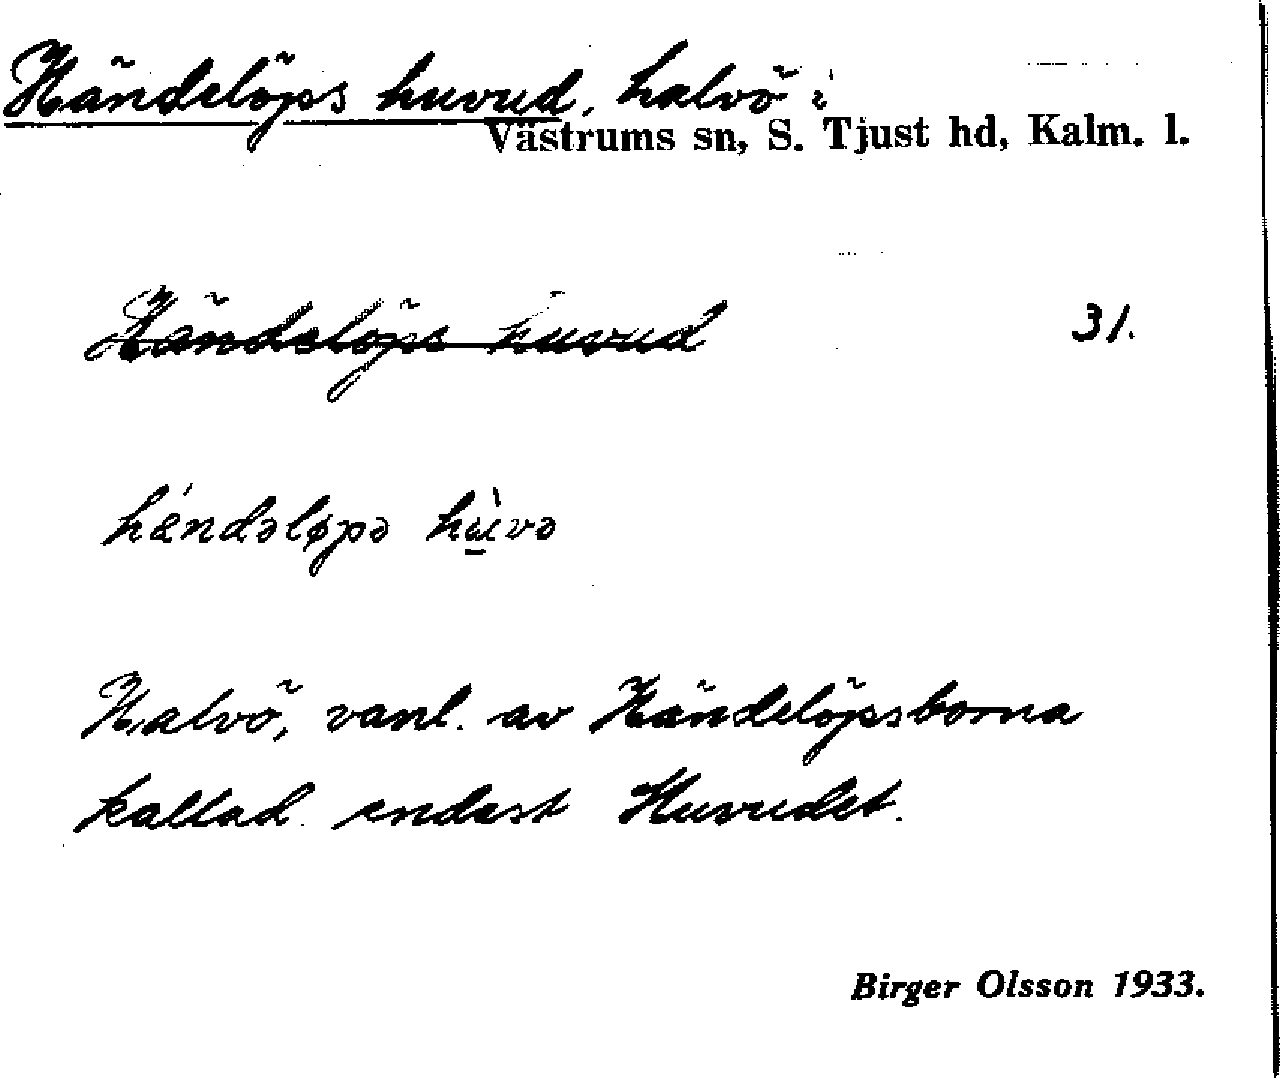 Händelöps huvud, halvö i
Västrums sn, S. Tjust hd, Kalm. l.
Händelöps huvud 31.
hændəløpə hu̱̇̀və
Halvö, vanl. av Händelöpsborna
kallad endast Huvudet.
Birger Olsson 1933.